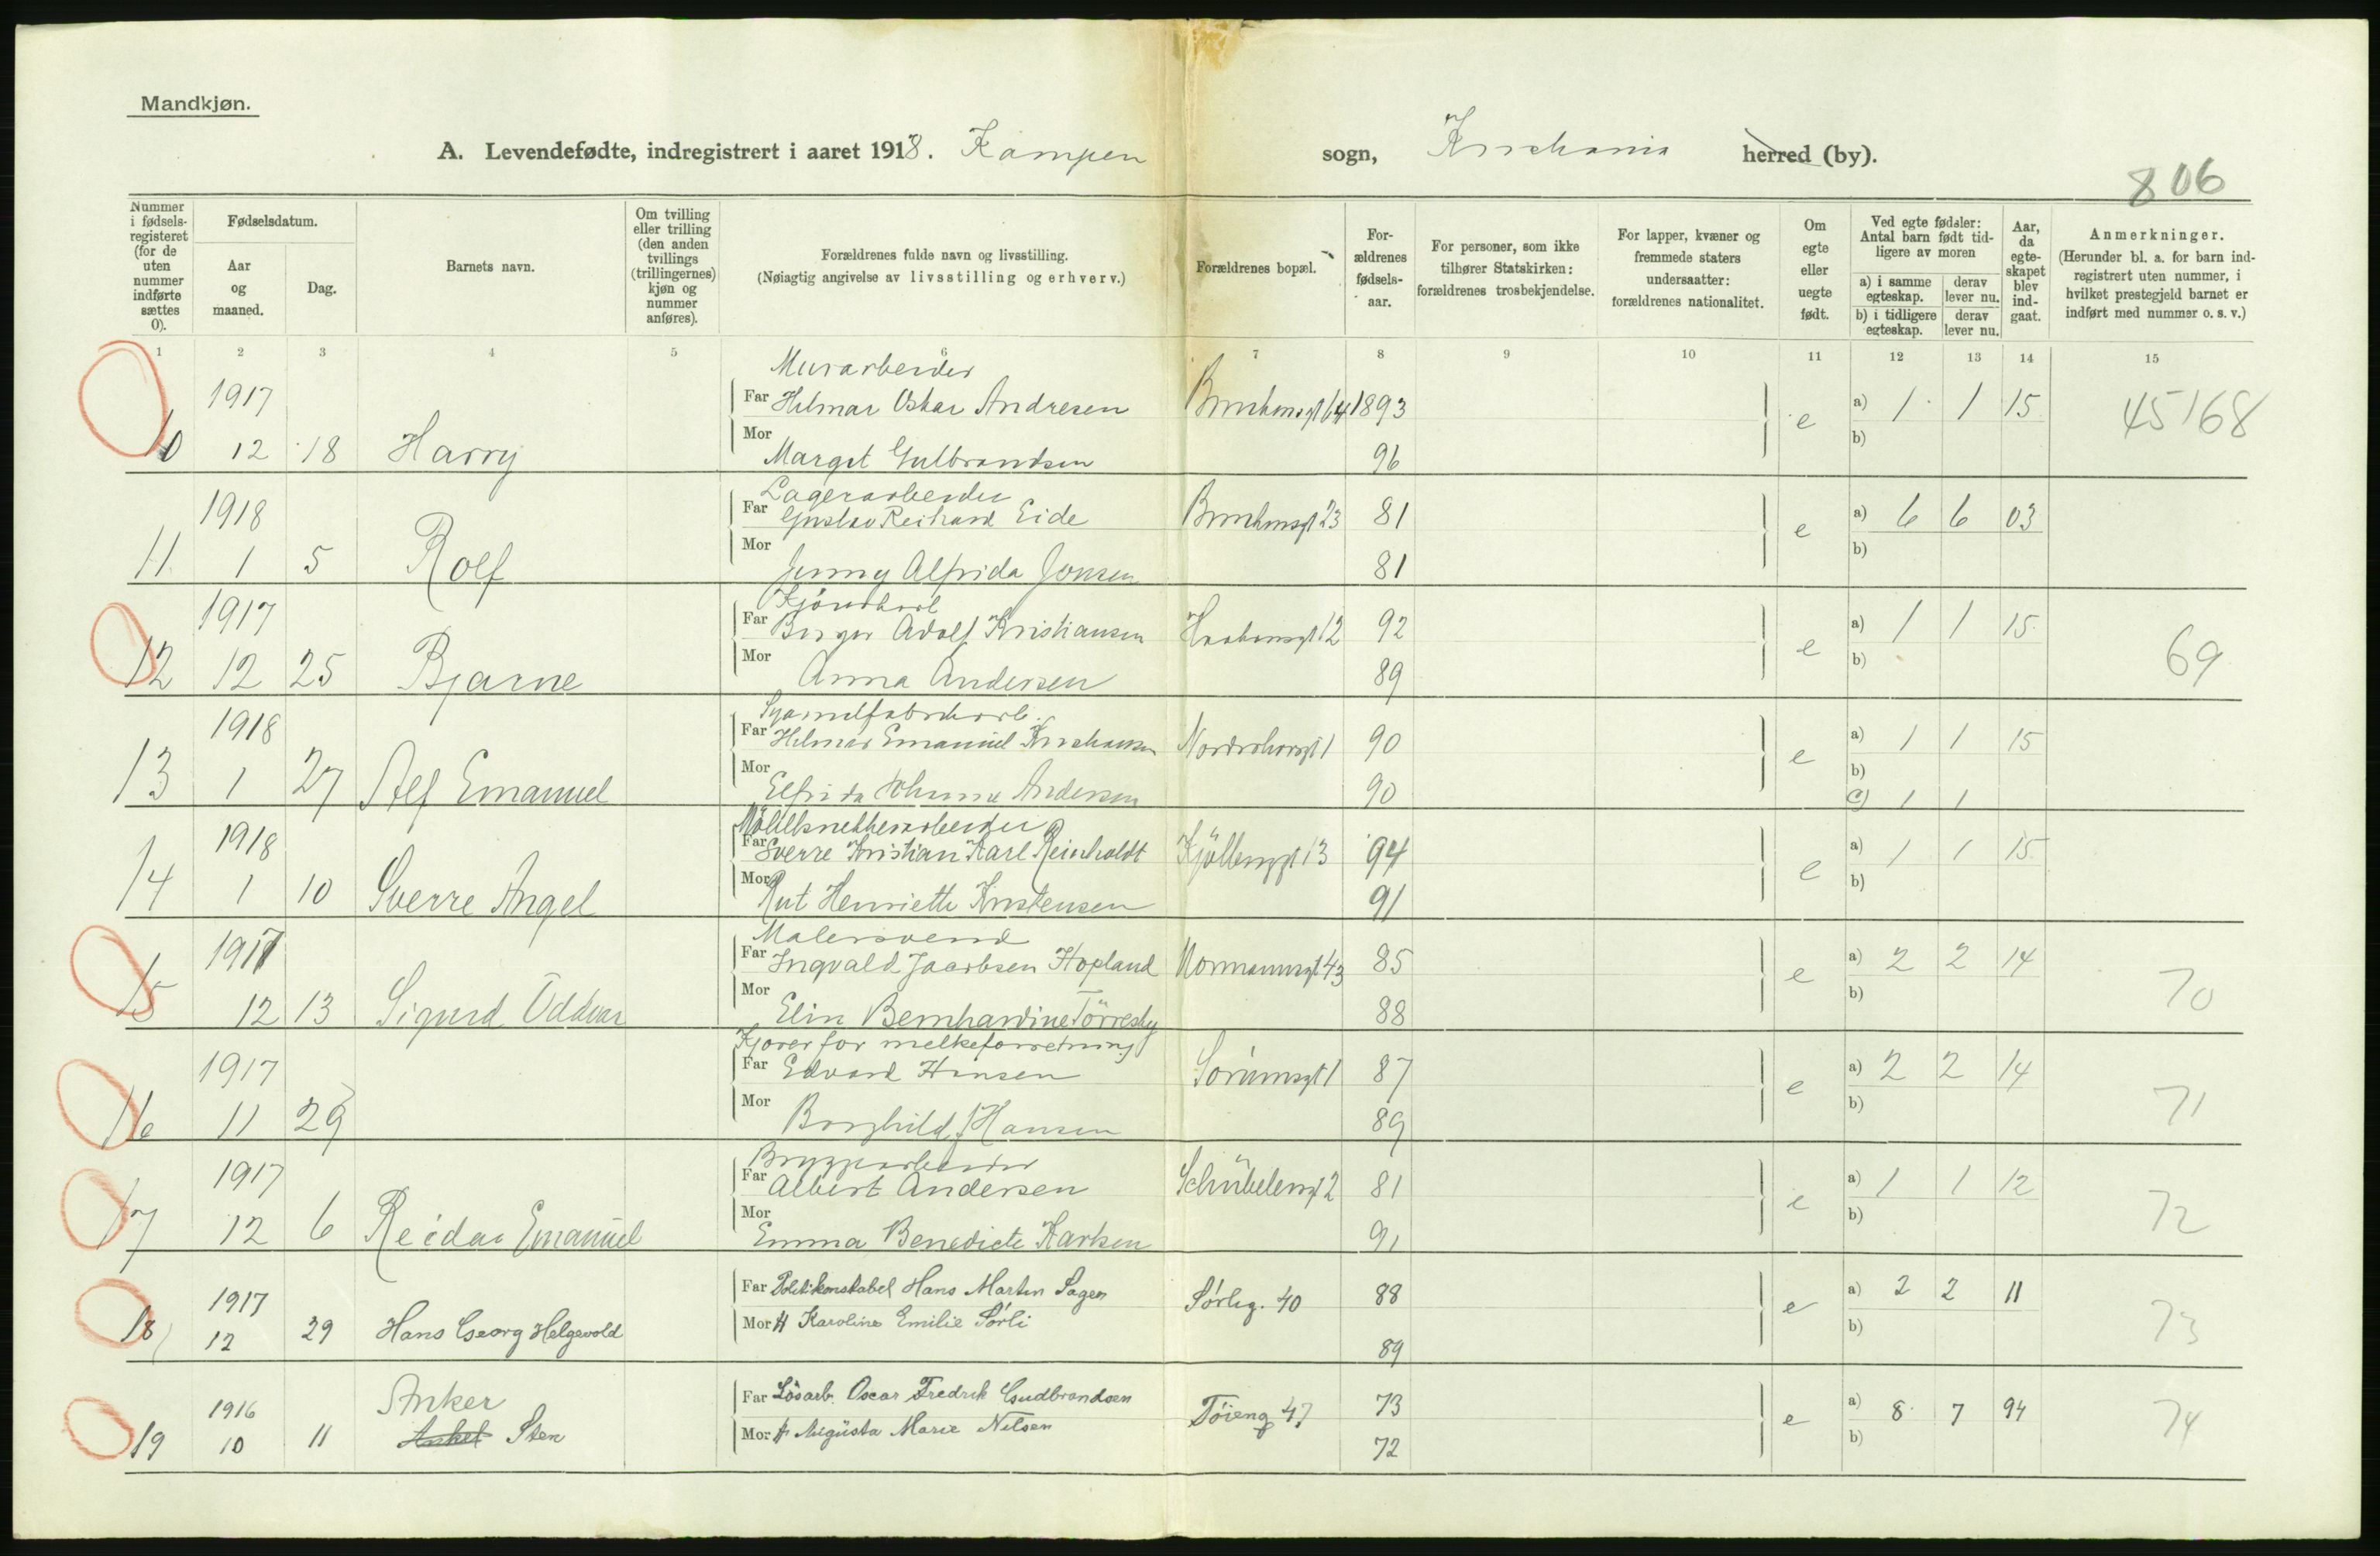 Mandkjøn.
A. Levendefødte, indregistrert i aaret 1918. Kampen sogn, Kristiania herred (by).
806
Nummer i fødselsregisteret (for de uten nummer indførte sættes 0).
Fødselsdatum.
Aar og maaned.
Dag.
Barnets navn.
Om tvilling eller trilling (den anden tvillings (trillingernes) kjøn og nummer anføres).
Forældrenes fulde navn og livsstilling.
(Nøiagtig angivelse av livsstilling og erhverv.)
Forældrenes bopæl.
Forældrenes fødselsaar.
For personer, som ikke tilhører Statskirken: forældrenes trosbekjendelse.
For lapper, kvæner og fremmede staters undersaatter: forældrenes nationalitet.
Om egte eller uegte født.
Ved egte fødsler: Antal barn født tidligere av moren
a) i samme egteskap. derav lever nu.
b) i tidligere egteskap. derav lever nu.
Aar, da egteskapet blev indgaat.
Anmerkninger.
(Herunder bl. a. for barn indregistrert uten nummer, i hvilket prestegjeld barnet er indført med nummer o. s. v.)
1 2 3 4 5 6 7 8 9 10 11 12 13 14 15
Murarbeider
1917 Far Hilmar Oskar Andresen 64 1893 e a) 1 1 15 45168
10 12 18 Harry Mor Margit Gulbrandsen 96 b)
Lagerarbeider
1918 Far Gustav Reihard Eide 23 81 e a) 6 6 03
11 1 5 Rolf Mor Jenny Alfrida Jonsen 81 b)
1917 Far Birger Adolf Kristiansen 12 92 e a) 1 1 15 69
12 12 25 Bjarne Mor Anna Andersen 89 b)
1918 Far Hilmar Emanuel Kristiansen 1 90 e a) 1 1 15
13 1 27 Alf Emanuel Mor Elfrida Andersen 90 b)
c) 1 1
1918 Far Sverre Kristian Karl Reinholdt 13 94 e a) 1 1 15
14 1 10 Sverre Angel Mor Rut Henriette Kristensen 91 b)
Malersvend
1917 Far Ingvald Jacobsen Hopland Normannsgt 43 85 e a) 2 2 14 70
15 12 13 Sigurd Oddvar Mor Elin Bernhardine Törresby 88 b)
Kjører for melkeforretning
1917 Far Edvard Hansen Sørumsgt 1 87 e a) 2 2 14 71
16 11 29 Mor Borghild Hansen 89 b)
Bryggearbeider
1917 Far Albert Andersen Schübelersgt 2 81 e a) 1 1 12 72
17 12 6 Reidar Emanuel Mor Emma Benedicte Karlsen 91 b)
1917 Far Politikonstabel Hans Martin Sagen Sørlig. 40 88 e a) 2 2 11 73
18 12 29 Hans Georg Helgevold Mor H Karoline Emilie Sørli 89 b)
Anker
1916 Far Løsarb. Oscar Fredrik Gudbrandsen Tøieng 47 73 e a) 8 7 94 74
19 10 11 Sten Mor H Augusta Marie Nilsen 72 b)